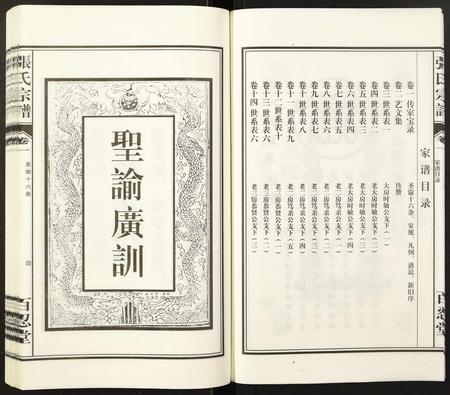 張氏宗譜
家谱目录
百忍堂
家谱目录
卷一 传家宝录 圣谕十六条、家规、凡例、谱说、新旧序
卷二 艺文集 传赞
卷三 世系表一 大房时敏公支下（一）
卷四 世系表二 老大房时敏公支下（二）
卷五 世系表三 老大房时敏公支下（三）
卷六 世系表四 老大房时敏公支下（四）
卷七 世系表五 老二房笃亲公支下（一）
卷八 世系表六 老二房笃亲公支下（二）
卷九 世系表七 老二房笃亲公支下（三）
卷十 世系表八 老二房笃亲公支下（四）
卷十一 世系表九 老二房笃亲公支下（五）
卷十二 世系表十 老三房恭贤公支下（一）
卷十三 世系表六 老三房恭贤公支下（二）
卷十四 世系表六 老三房恭贤公支下（三）
聖諭廣訓
張氏宗譜
卷一
圣谕十六条
四
百忍堂